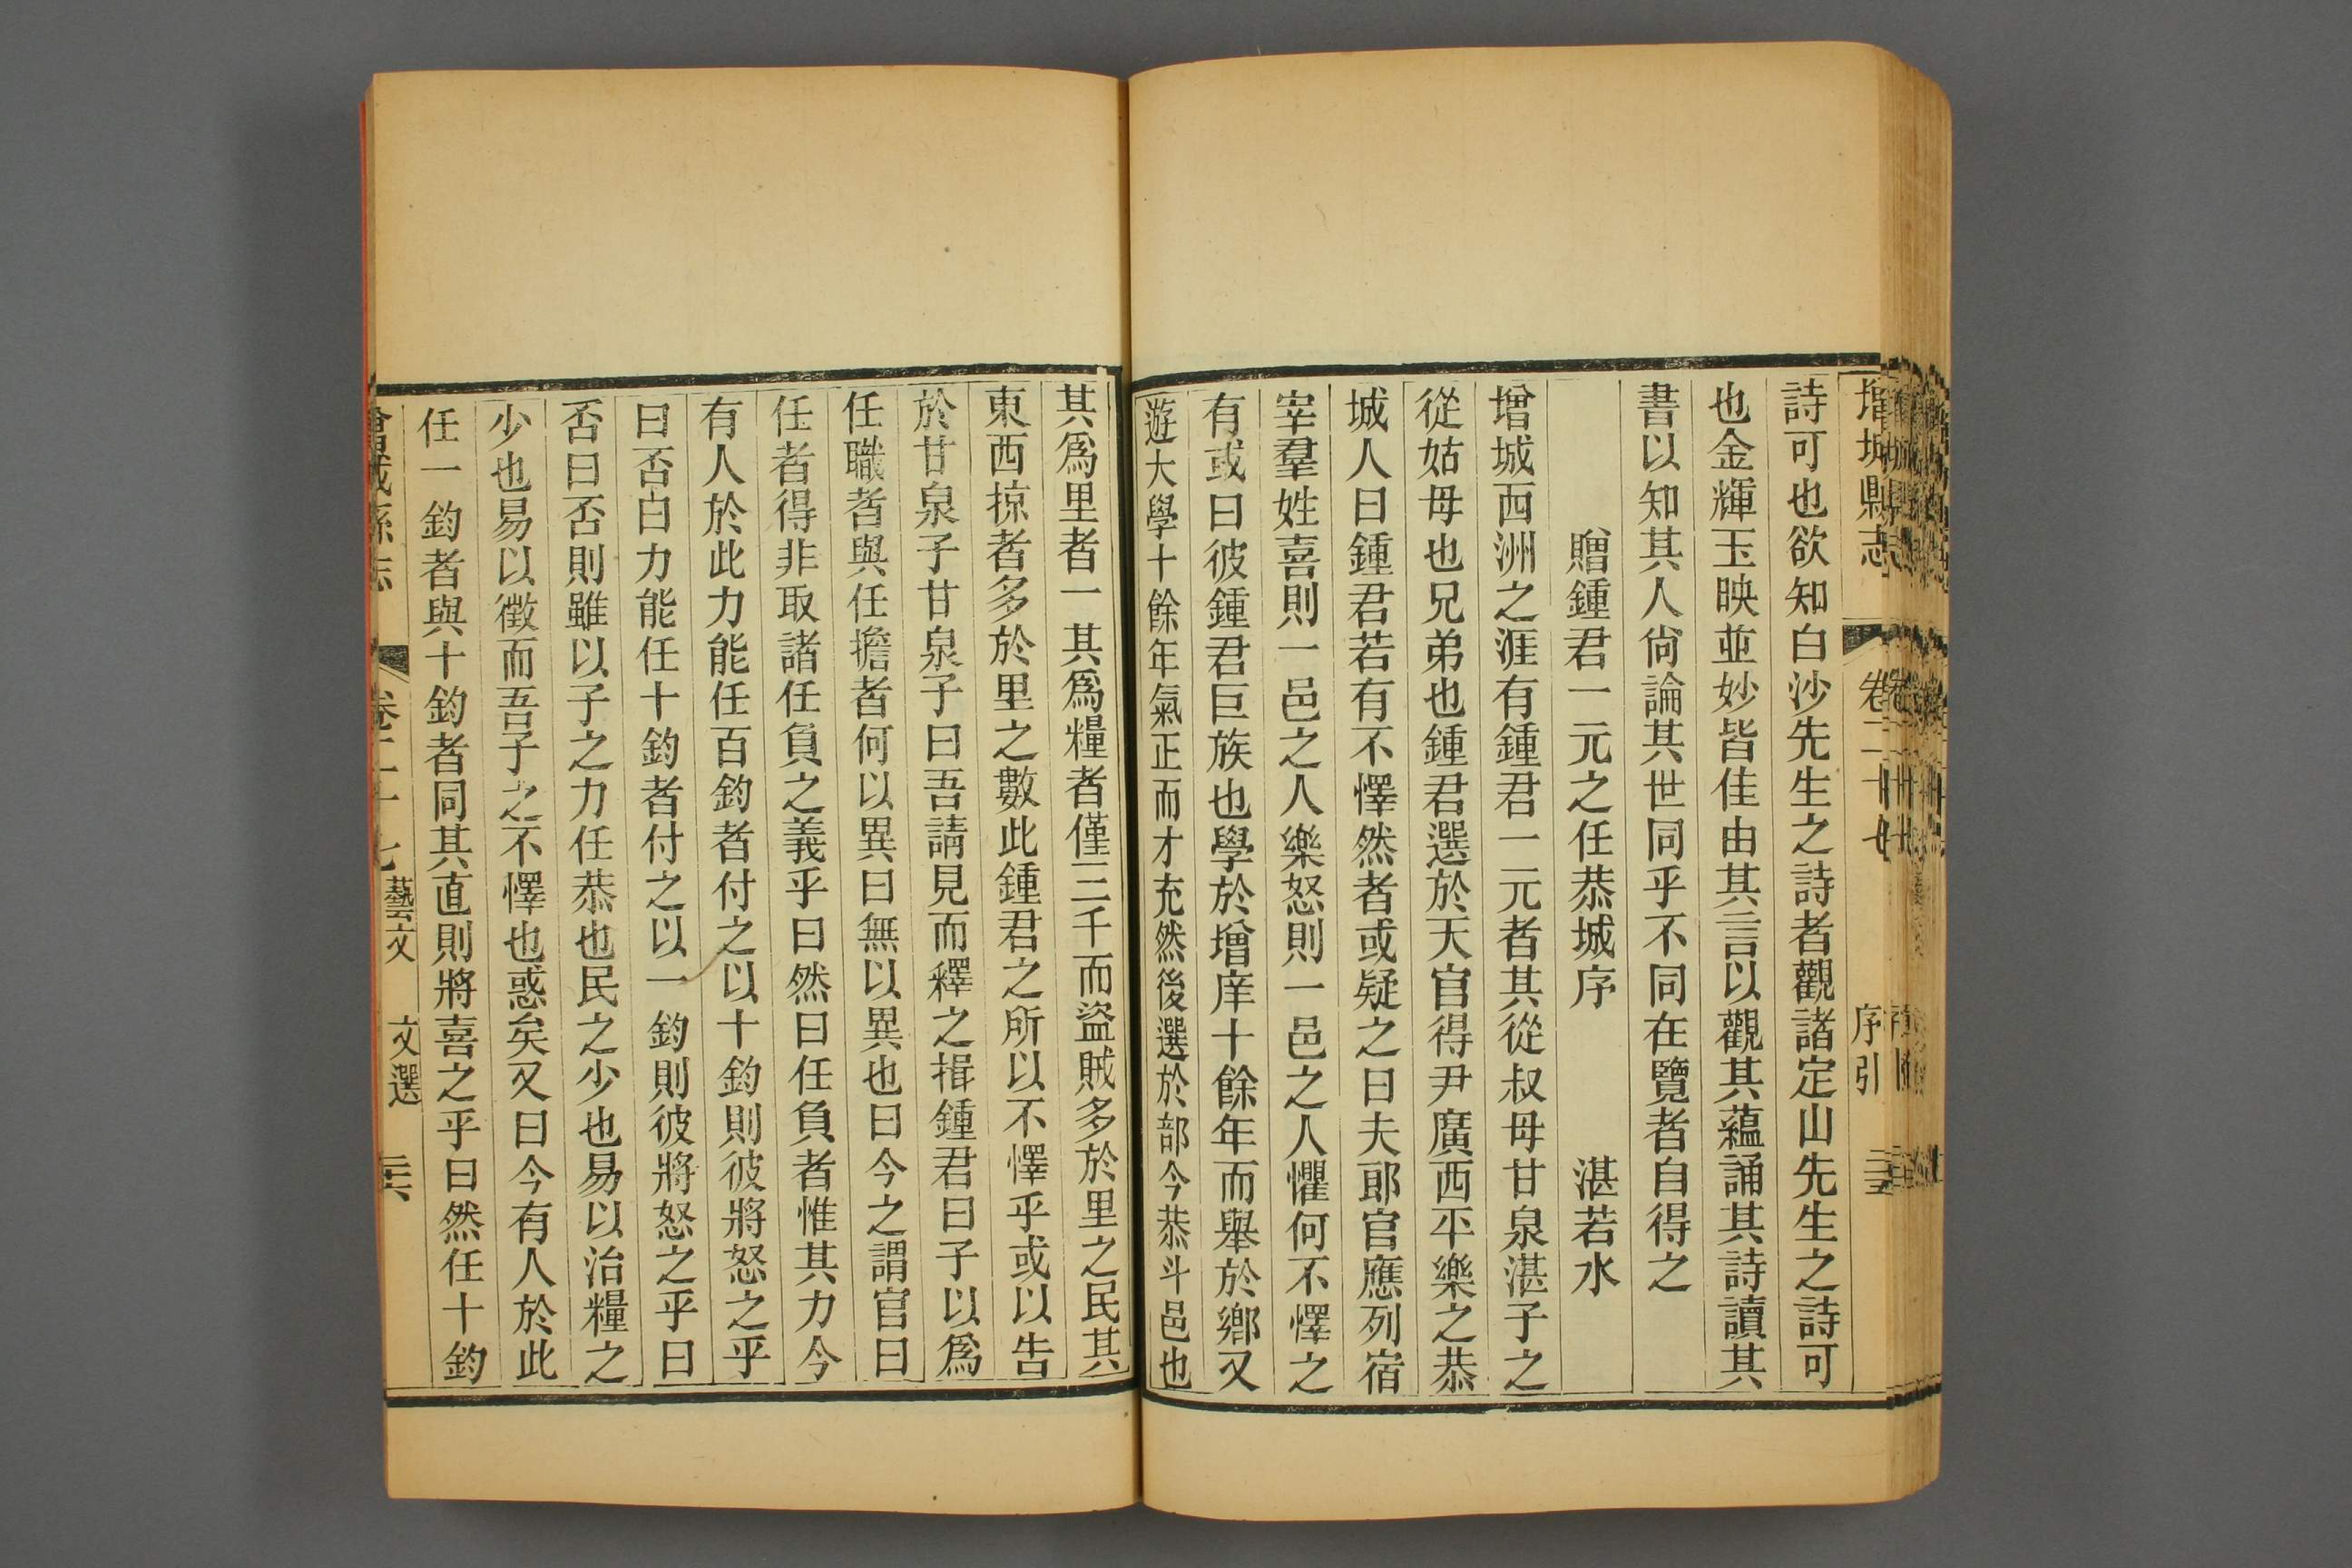 增城縣志 卷二十七 序引 三五
詩可也欲知白沙先生之詩者觀諸定山先生之詩可
也金輝玉映並妙皆佳由其言以觀其蘊誦其詩讀其
書以知其人尙論其世同乎不同在覽者自得之
贈鍾君一元之任恭城序 湛若水
增城西洲之涯有鍾君一元者其從叔母甘泉湛子之
從姑母也兄弟也鍾君選於天官得尹廣西平樂之恭
城人曰鍾君若有不懌然者或疑之曰夫郎官應列宿
宰羣姓喜則一邑之人樂怒則一邑之人懼何不懌之
有或曰彼鍾君巨族也學於增庠十餘年而舉於鄉又
遊大學十餘年氣正而才充然後選於部今恭斗邑也
其爲里者一其爲糧者僅三千而盜賊多於里之民其
東西掠者多於里之數此鍾君之所以不懌乎或以告
於甘泉子甘泉子曰吾請見而釋之揖鍾君曰子以爲
任職者與任擔者何以異曰無以異也曰今之謂官曰
任者得非取諸任負之義乎曰然曰任負者惟其力今
有人於此力能任百鈞者付之以十鈞則彼將怒之乎
曰否曰力能任十鈞者付之以一鈞則彼將怒之乎曰
否曰否則雖以子之力任恭也民之少也易以治糧之
少也易以徵而吾子之不懌也惑矣又曰今有人於此
任一鈞者與十鈞者同其直則將喜之乎曰然任十鈞
增城縣志 卷二十七 藝文 文選 三六